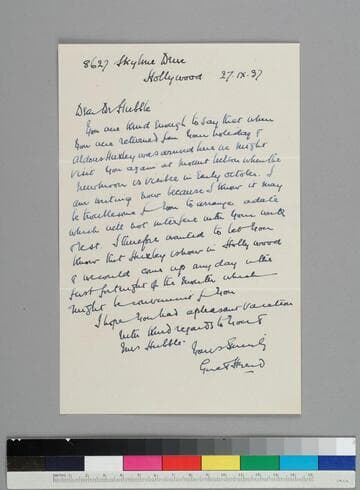 8627 Skyline Drive
Hollywood 27.IX.37
Dear Dr Hubble
You are kind enough to say that when
you are returned from your holiday &
Aldous Huxley was around here we might
visit you again at Mount Wilson when the
New moon is visible in early October. I
am writing now because I know it may
be troublesome for you to arrange a date
which will not interfere with your work
& rest. I therefore wanted to let you
know that Huxley is now in Hollywood
& we could come up any day in the
first fortnight of the month which
might be convenient for you
I hope you had a pleasant vacation
With kind regards to you &
Mrs Hubble.
Yours Sincerely
Gerald Heard